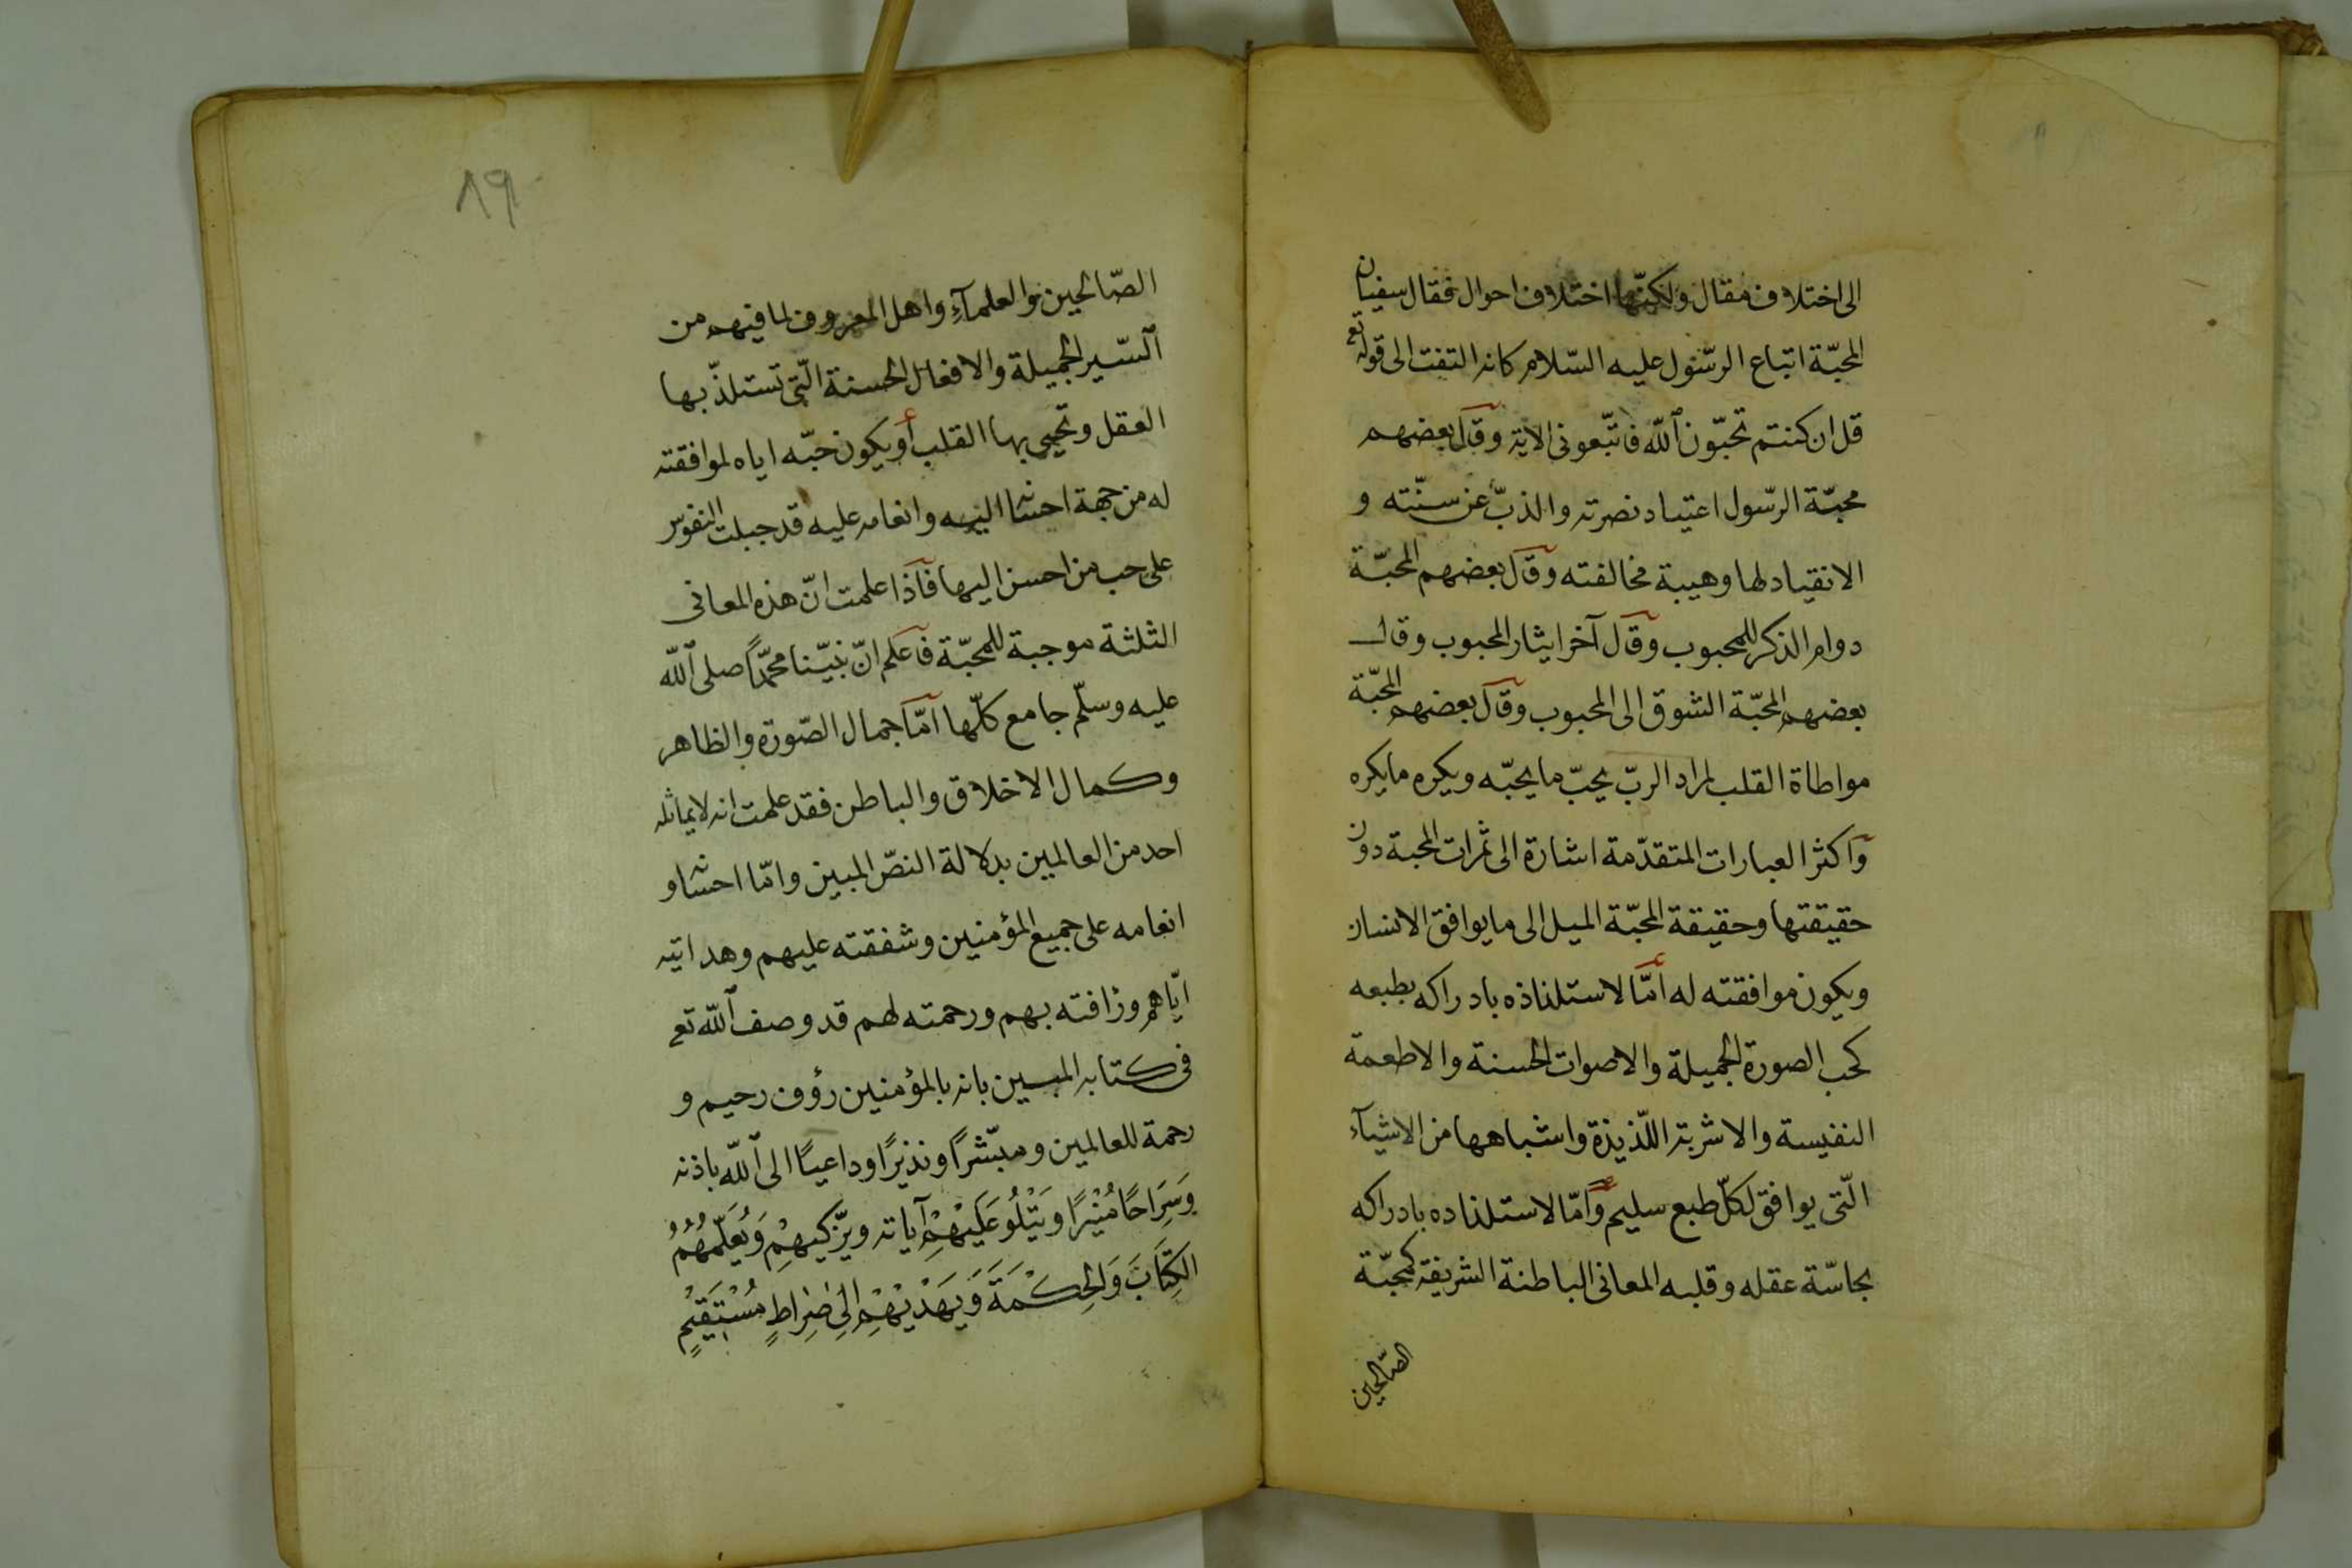 الى اختلاف مقال ولكنّها اختلاف احوال فقال سفيان
المحبّة اتباع الرّسول عليه السّلام كانه التفت الى قوله تع
قل ان كنتم تحبّون الله فاتّبعونى الاية وقال بعضهم
محبّة الرّسول اعتياد نصرته والذبّ عن سنّته و
الانقياد لها وهيبة مخالفته وقال بعضهم المحبّة
دوام الذكر للمحبوب وقال آخر ايثار المحبوب وقال
بعضهم المحبّة الشوق الى المحبوب وقال بعضهم المحبّة
مواطاة القلب لمراد الربّ يحبّ ما يحبّه ويكره ما يكره
واكثر العبارات المتقدّمة اشارة الى ثمرات المحبة دون
حقيقتها وحقيقة المحبّة الميل الى ما يوافق الانسان
ويكون موافقته له امّا لاستلذاذه بادراكه بطبعه
كحب الصورة الجميلة والاصوات الحسنة والاطعمة
النفيسة والاشربة اللّذيذة واشباهها من الاشيآء
الّتى يوافق لكلّ طبع سليم وامّا لاستلذاده بادراكه
بحاسّة عقله وقلبه المعانى الباطنة الشريفة كمحبّة
الصّالحين
٨٩
الصّالحين والعلمآء واهل المعروف لما فيهم من
السّير الجميلة والافعال الحسنة الّتى تستلذّ بها
العقل وتحيى بها القلب أويكون حبّه اياه لموافقته
له من جهة احسانه اليه وانعامه عليه قد جبلت النفوس
على حب من احسن اليها فاذا علمت انّ هذه المعانى
الثلثة موجبة للمحبّة فاعلم انّ نبيّنا محمّدًا صلى الله
عليه وسلّم جامع كلّها امّا جمال الصّورة والظاهر
وكمال الاخلاق والباطن فقد علمت انه لا يماثله
احد من العالمين بدلالة النصّ المبين وامّا احسانه و
انعامه على جميع المؤمنين وشفقته عليهم وهدايته
ايّاهم ورٔافته بهم ورحمته لهم قد وصف الله تع
فى كتابه المبين بانه بالمؤمنين رؤف رحيم و
رحمة للعالمين ومبّشرًا ونذيرًا وداعيًا الى الله باذنه
وَسِرَاجًا مُنْيرًا ويَتْلُو عَلَيْهِمْ آياته ويزّكيهِمْ وَيُعَلِّمُهُمُ
الكِتَابَ وَالحِكْمَةَ وَيَهَدْيْهِمْ اِلىَ صِرَاطٍ مُسْتَقيْمٍ